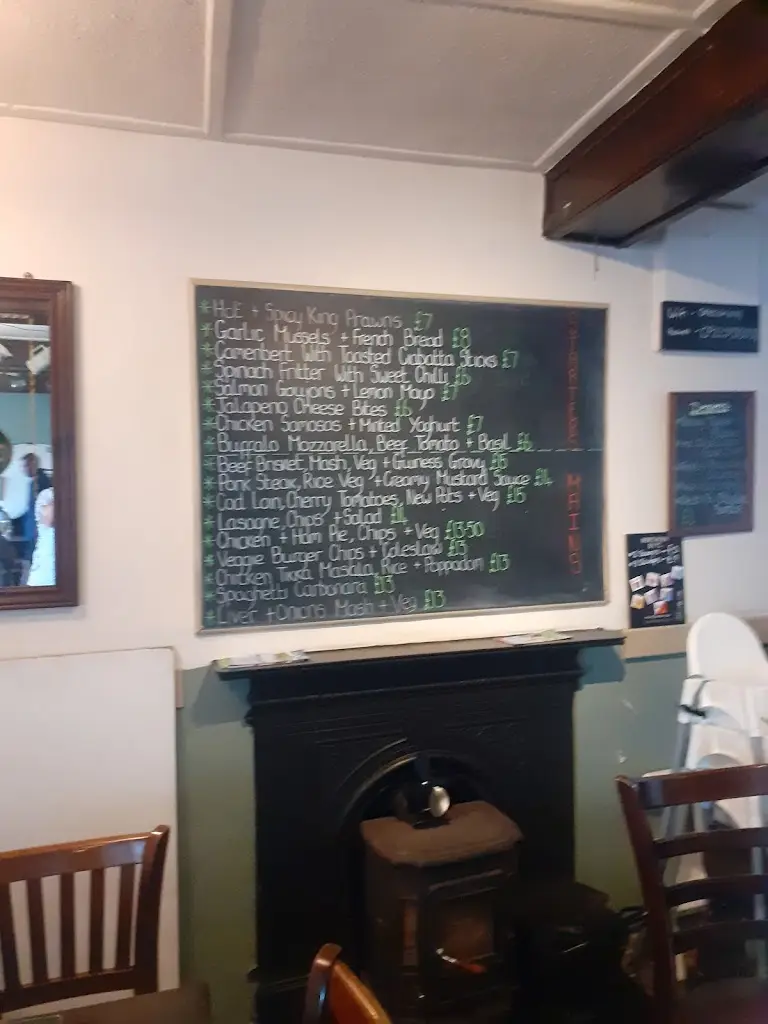 * Hot + Spicy King Prawns £7
* Garlic Mussels + French Bread £8
* Camenbert With Toasted Ciabatta Sticks £7
* Spinach Fritter With Sweet Chilli £6
* Salmon Goujons + Lemon Mayo £7
* Jalapeno Cheese Bites £6
* Chicken Samosas + Minted Yoghurt £7
* Buffalo Mozzarella, Beef Tomato + Basil £6
STARTERS
* Beef Brisket, Mash, Veg + Guiness Gravy £15
* Pork Steak, Rice Veg + Creamy Mustard Sauce £14
* Cod Loin, Cherry Tomatoes, New Pots + Veg £15
* Lasagne, Chips + Salad £14
* Chicken + Ham Pie, Chips + Veg £13.50
* Veggie Burger Chips + Coleslaw £13
* Chicken Tikka Masala, Rice + Poppadom £13
* Spaghetti Carbonara £13
* Liver + Onions Mash + Veg £13
MAINS